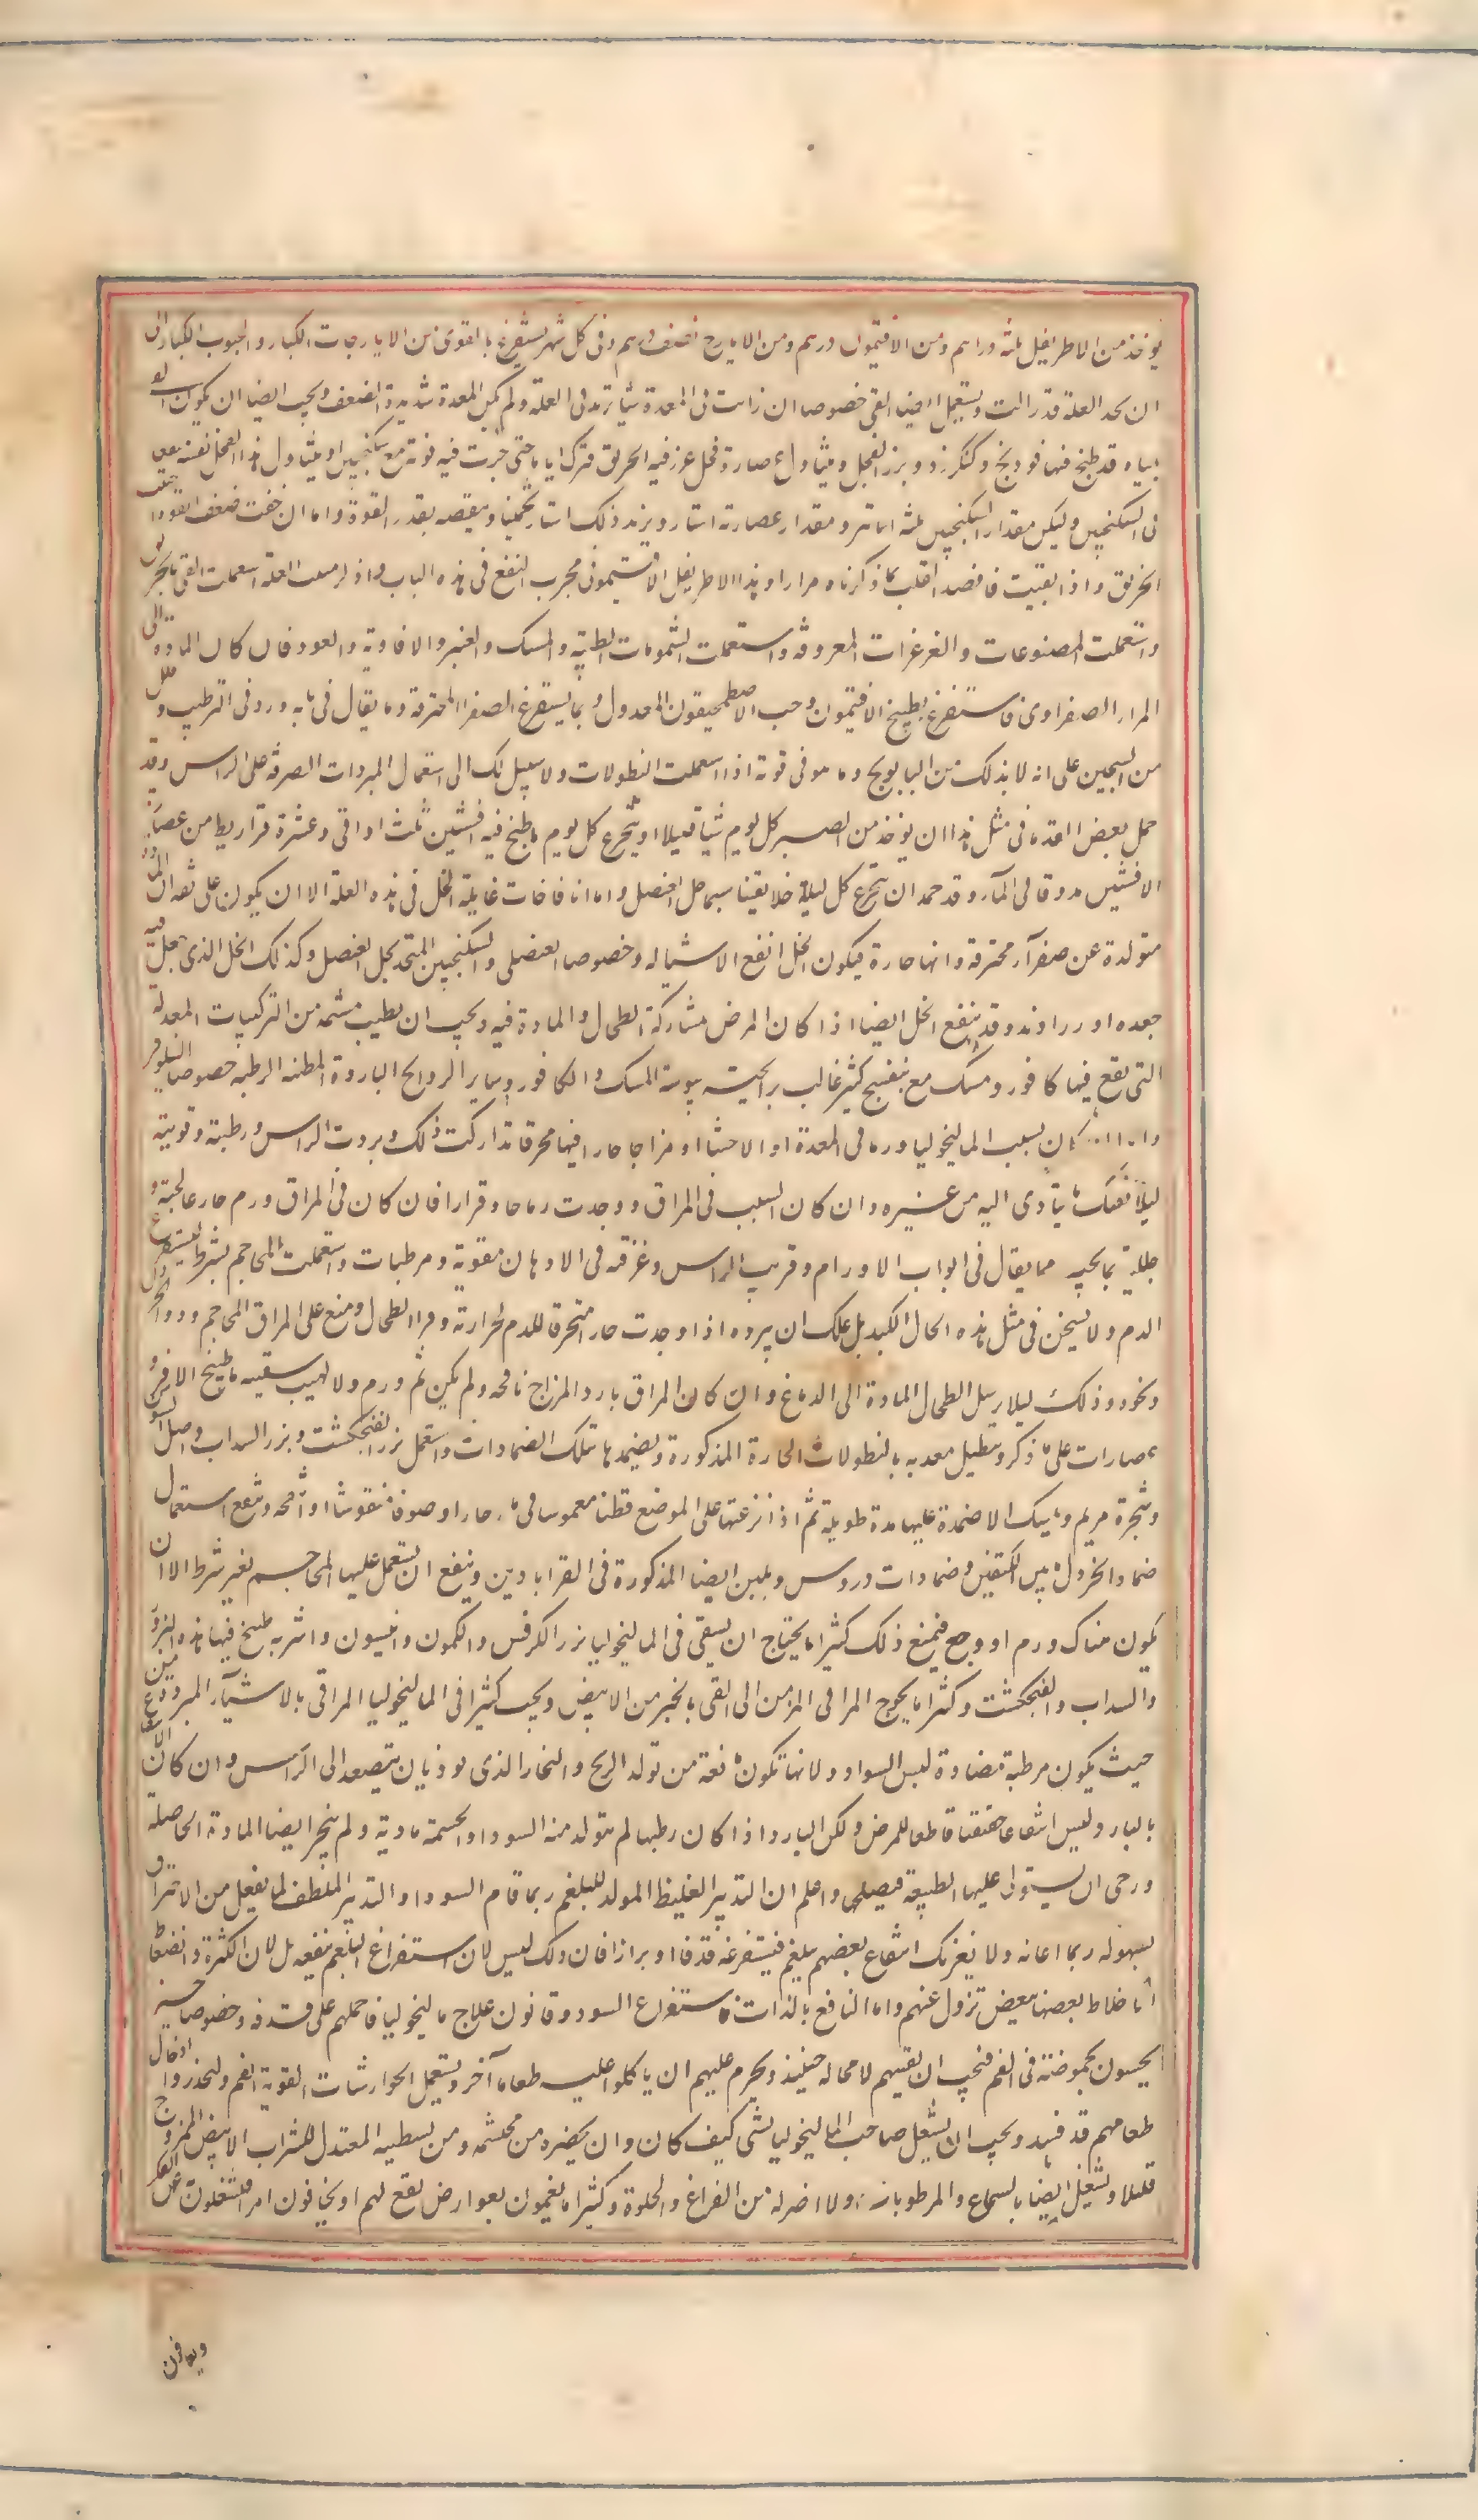 يوخذ من الاطريفل ثلثة دراهم ومن الافتيمون درهم ومن الايارج نصف درهم وفى كل شهر يستفرغ بالقوى من الايارجات الكبار والحبوب الكبار الى
ان يجد العلة قد زالت ويستعمل ايضا القى خصوصا ان رايت فى المعدة شيا يزيد فى العلة ولم يكن المعدة شديدة الضعف ويجب ايضا ان يكون
بمياه قد طبخ فيها فودنج وكنكرزد وبزر الفجل ويتناول عصارة فجل غرز فيه الخربق وترك اياما حتى جرت فيه قوته مع سكنجبين او يتناول هذا الفجل نفسه
فى السكنجبين وليكن مقدار السكنجبين ثلثة اساتير ومقدار عصارته استار ويزيد ذلك استار تخمينا وينقصه بقدر القوة واما ان خفت ضعف القوة
الخربق واذا نقيت فاقصد القلب بما ذكرناه مرارا وهذا الاطريفل الافتيمونى مجرب النفع فى هذه الباب واذا ازمنت العلة استعملت القى بالخربق
واستعملت المصنوعات والغرغرات المعروفة واستعملت الشمومات الطيبة والمسك والعنبر والافاوية والعود فان كان المادة الى
المرار الصفراوى فاستفرغ بطبيخ الافتيمون وحب الاصطمخيقون المعدول وبما يستفرغ الصفرا المحترقة وما يقال فى بابه وزد فى الترطيب وقلل
من التسخين على انه لا بد لك من البابونج وما هو فى قوته اذا استعملت النطولات ولا سبيل لك الى استعمال المبردات الصرفة على الراس وقد
حمل بعض القدما فى مثل هذا ان يوخذ من الصبر كل يوم شيا قليلا او يتجرع كل يوم ما طبخ فيه افسنتين ثلث اواقى وعشرة قراريط من عصارة
الافسنتين مدوفا فى المآ وقد حمد ان يتجرع كل ليلة خلا ثقيفا سيما خل العنصل واما انا فاخاف غايلة الخل فى هذه العلة الا ان يكون على ثقة ان المادة
متولدة عن صفرآ محترقة وانها حارة فيكون الخل انفع الاشيا له وخصوصا العنصلى والسكنجبين المتخذ بخل العنصل وكذلك الخل الذى جعل فيه
جعده او زراوند وقد ينفع الخل ايضا اذا كان المرض مشاركة الطحال والمادة فيه ويجب ان يطيب مشمه من التركيبات المعدلة
التى يقع فيها كافور ومسك مع بنفسج كثير غالب برايحته يبوسة المسك والكافور وساير الروايح الباردة المطفية الرطبة خصوصا النيلوفر
كان بسبب الماليخوليا ورما فى المعدة او الاحشا او مزاجا حارا فيها محرقا تداركت ذلك وبردت الراس ورطبته وقويته
ليلا يتادى اليه من غيره وان كان السبب فى المراق ووجدت رياحا وقراقر فان كان فى المراق ورم حار عالجته و
حللته بما يجب مما يقال فى ابواب الاورام وقويت الراس وغرقته فى الادهان مقوية ومرطبات واستعملت المحاجم بشرط ليستفرغ
الدم ولا يسخن فى مثل هذه الحال الكبد بل عليك ان يبرده اذا وجدت حارا محرقا للدم لحرارته وقو الطحال وضع على المراق المحاجم
ونحوه وذلك ليلا يرسل الطحال المادة الى الدماغ وان كان المراق بارد المزاج نافخه ولم يكن ثم ورم ولا لهيب سقيته طبيخ الافسنتين و
عصارات على ما ذكر وينطيل معدته بالنطولات الحارة المذكورة ويضمدها بتلك الضمادات واستعمل بزر الفنجنكشت وبزر السداب واصل السوسن
وشجرة مريم ويمسك الاضمدة عليها مدة طويلة ثم اذا نزعتها على الموضع قطنا مغموسا فى ما حار او صوفا منفوشا او اسفنجه وينفع استعمال
ضماد الخردل بين الكتفين وضمادات ذروس وبلبن ايضا المذكورة فى القرابادين وينفع ان يستعمل عليها المحاجم بغير شرط الا ان
يكون هناك ورم او وجع فيمنع ذلك كثيرا ما يحتاج ان يسقى فى الماليخوليا بزر الكرفس والكمون وانيسون واشربه طبخ فيها هذه البزور
والسداب والفنجنكشت وكثيرا ما يحوج المراقى المزمن الى القى بالخربق الابيض ويجب كثيرا فى الماليخوليا المراقى بالاشيآء المبردة من
حيث يكون مرطبة مضادة ليبس السوداء ولانها تكون مانعة من تولد الريح والبخار الذى يوذيان بتصعد الى الرآس وان كان
بالبارد وليس انتفاعا حقيقيا قاطعا للمرض ولكن البارد اذا كان رطبا لم يتولد منه السودا والحسمة مادية ولم يتبخر ايضا المادة الحاصلة
ورجى ان يستولى عليها الطبيعة فيصلحها واعلم ان التدبير الغليظ المولد للبلغم ربما قاوم السودا والتدبير الملطف لما يفعل من الاحتراق
بسهولة ربما اعانه ولا يغرنك انتفاع بعضهم ببلغم فيستفرغه قذفا او برازا فان ذلك ليس لان استفراغ البلغم ينفعه بل لان الكثرة وانضغاط
الاخلاط بعضها ببعض تزول عنهم واما النافع بالذات فاستفراغ السودا وقانون علاج ماليخوليا فاحملهم على قذفه وخصوصا حين
يحسون بحموضة فى الفم فيجب ان يقيهم لا محالة حينئذ ويحرم عليهم ان ياكلوا عليه طعاما آخر ويستعمل الجوارشات المقوية الفم وليحذروا ادخال
طعامهم قد فسد ويجب ان يشتغل صاحب الماليخوليا بشى كيف كان وان يحضره من يحتشمه ومن يستطيبه المعتدل للشراب الابيض الممزوج
قليلا ويشغل ايضا بالسماع والمطربات ولا اضر له من الفراغ والخلوة وكثيرا ما يغتمون بعوارض يقع لهم او يخافون امرا فيشتغلون عن الفكر